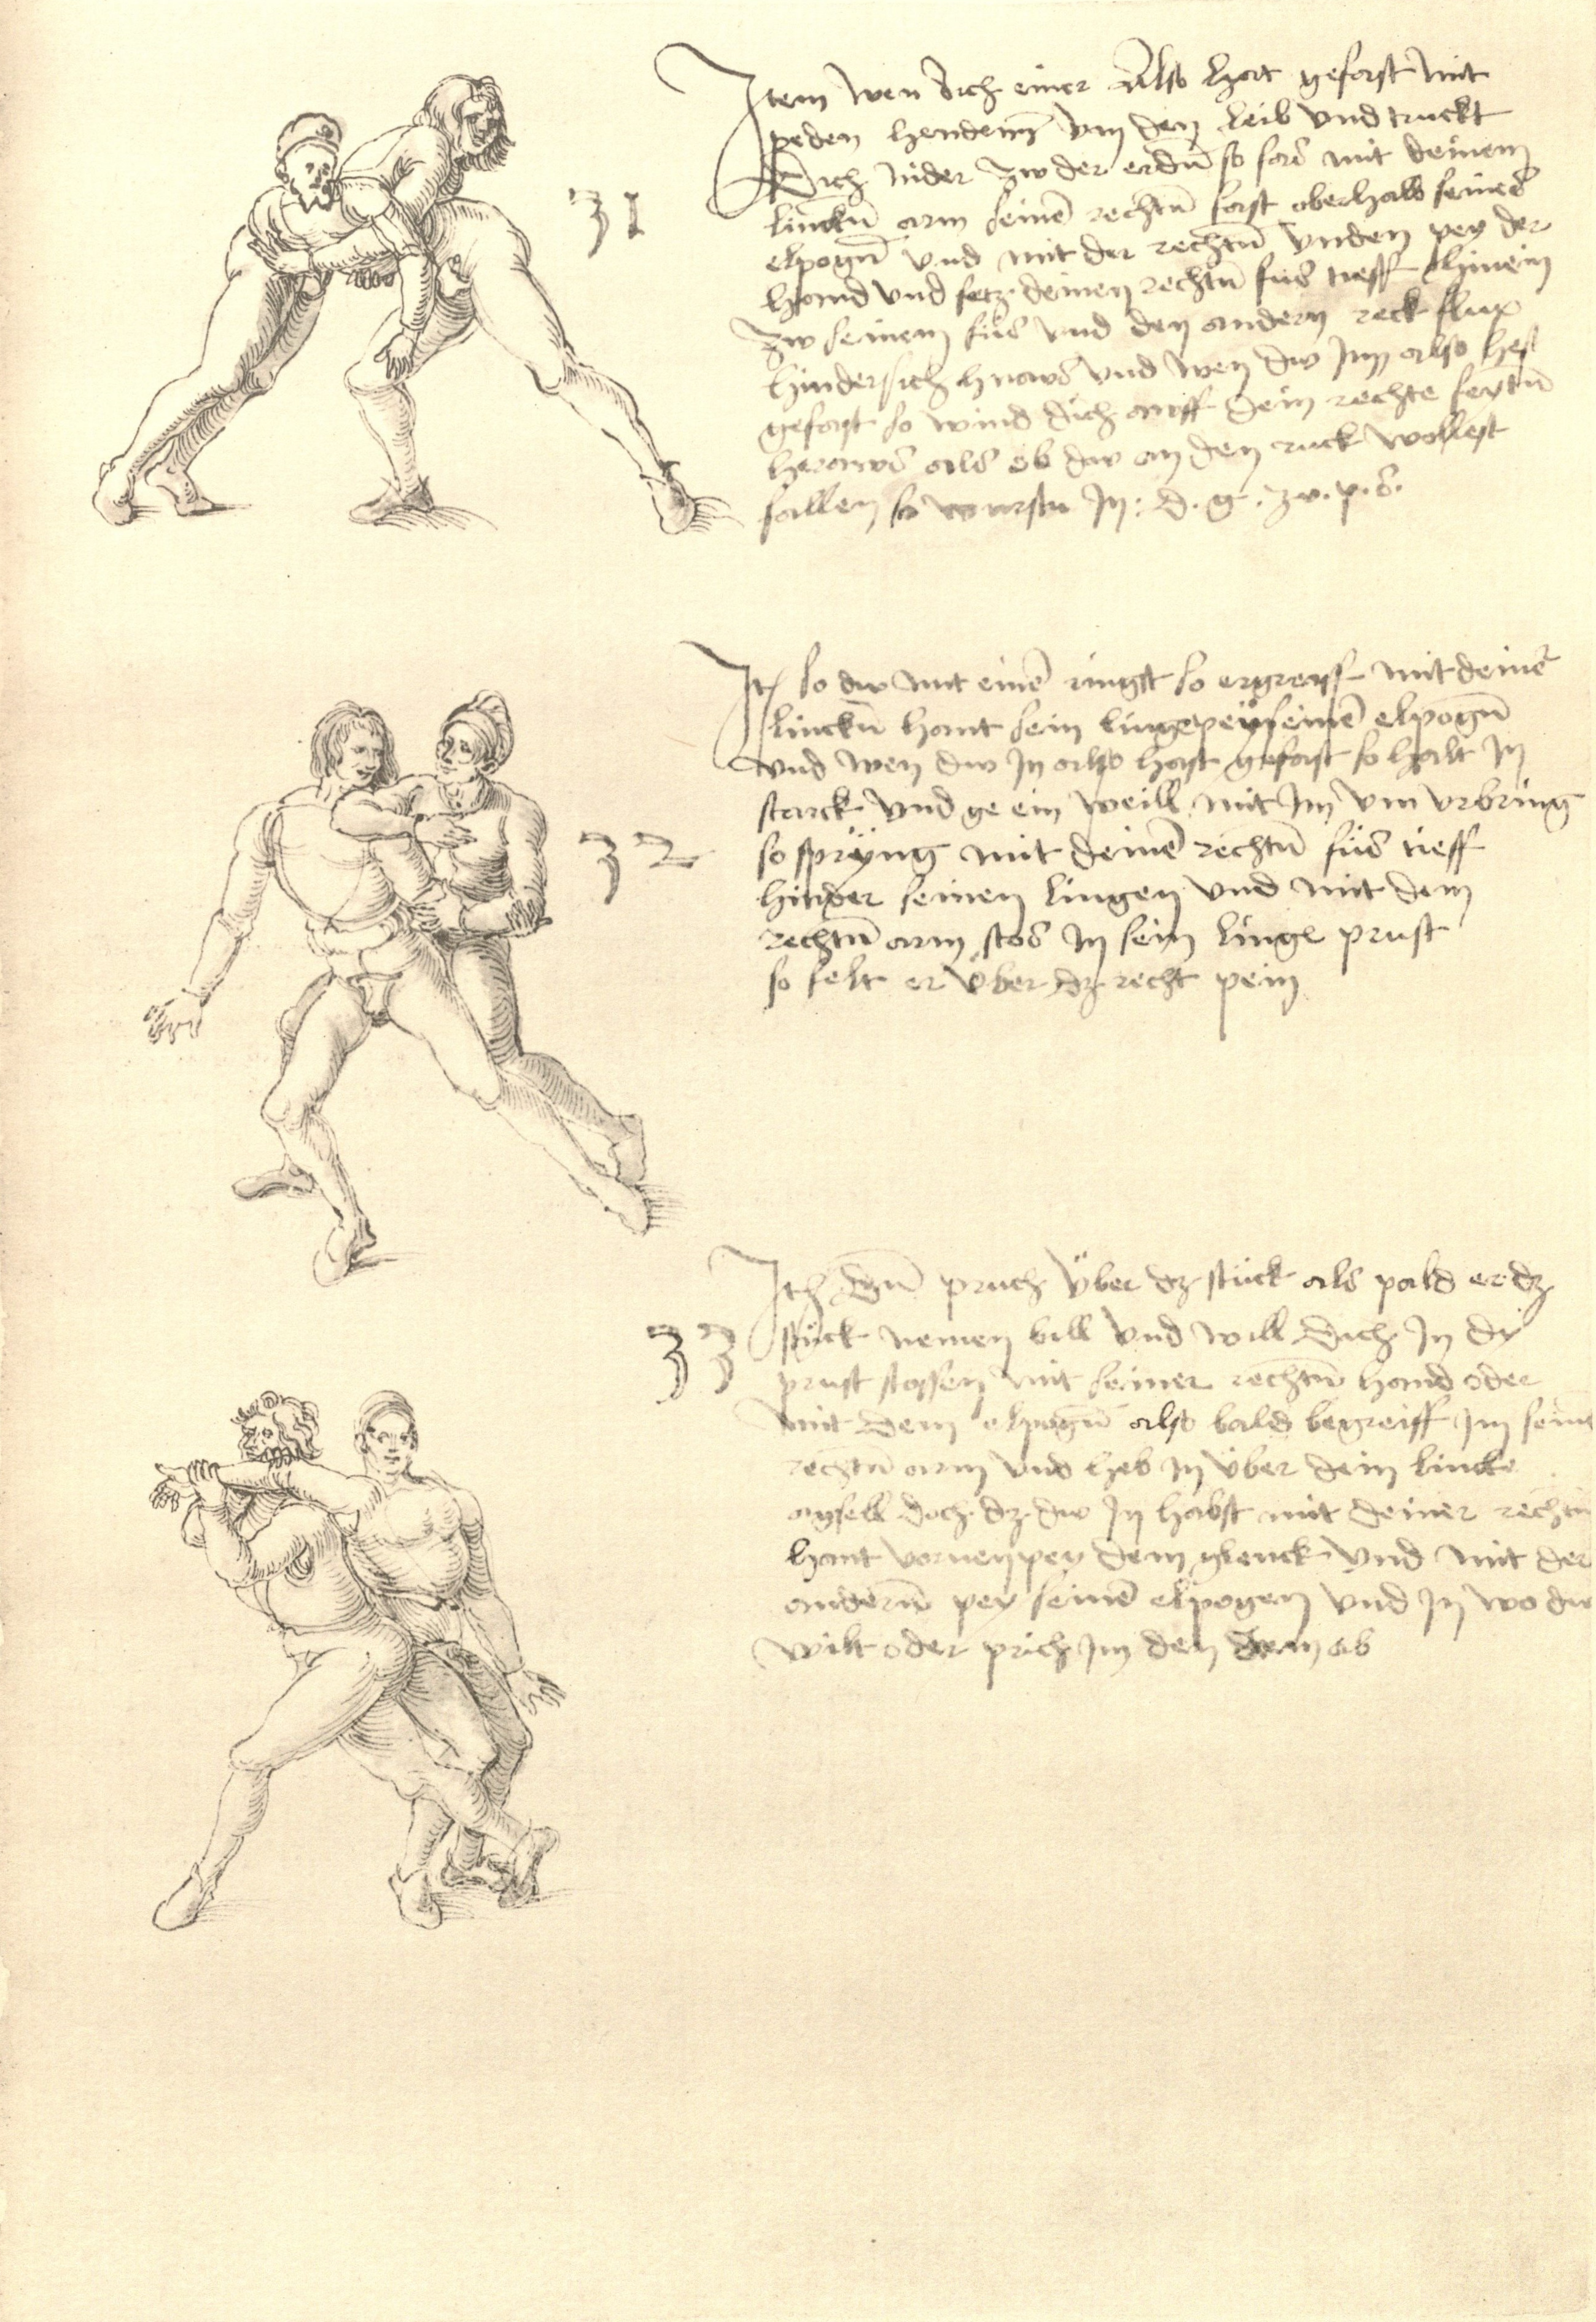 Item wen dich einer Also hart gefast mit
peden henden vm den leib vnd truckt
Dich nider zw der erdn̄ so fas mit deinem
linckn̄ arm seinē rechtn̄ fast oberhalb seines
elpogn̄ vnd mit der rechtn̄ vnden pey der
hand vnd secz deinen rechtn̄ fus tieff hinein
zw seinem füs vnd den andern reck flux
hindersich hnaws vnd wen dw Im also hest
gefast so wind dich awff dein rechte seytn̄
heraws als ob dw an den ruck wollest
fallen so wurstu In: d. g. zw. p. s.
31
Itē so dw mit einē ringst so ergreyff mit deinē
linckn̄ hant sein linge pey seinē elpogn̄
vnd wen dw In also hast gefast so halt In
starck vnd ge ein weill mit Im vm vrbring
so spryng mit deinē rechtn̄ füs tieff
hinder seinen lingen vnd mit dem
rechtn̄ arm stos In sein linge prust
so felt er über dz recht pein
32
Itē Ein pruch über dz stück als pald er dz
33 stück nemen bill vnd will dich In dy
prust stossen mit seiner rechtn̄ hand oder
mit dem elpogn̄ also bald begreiff Im sein
rechtn̄ arm vnd heb In über dein lincke
agsell doch dz dw In habst mit deiner rechtn̄
hant vornen pey dem glenck vnd mit der
andern̄ pey seinē elpogen vnd In wo dw
wilt oder prich Im den arm ab